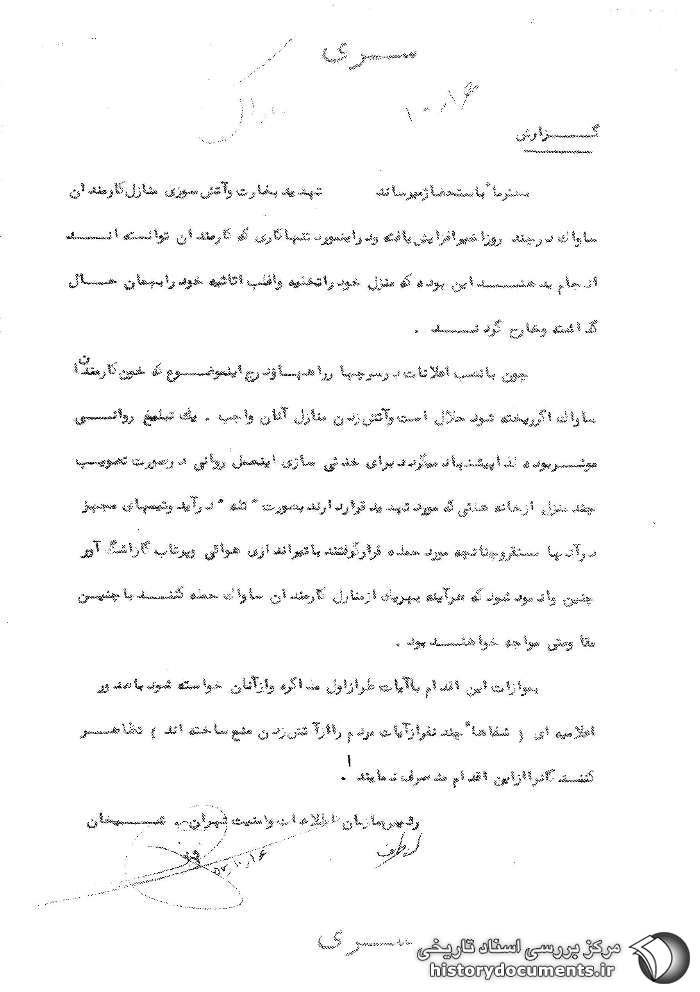 سری
۱۰/۱۶
گزارش
محترماً باستحضار میرساند تهدید بغارت وآتش سوزی منازل کارمندان
ساواک در چند روز اخیر افزایش یافته ودراینمورد تنهاکاری که کارمندان توانسته اند
انجام بدهند این بوده که منزل خود راتخلیه واغلب اثاثیه خود رابهمان حال
گذاشته وخارج گردند .
چون بانصب اعلانات در سرچهارراهها ودرج اینموضوع که خون کارمندان
ساواک اگرریخته شود حلال است وآتش زدن منازل آنان واجب . یک تبلیغ روانی
موثربوده لذا پیشنهاد میگردد برای خنثی سازی اینعمل روانی درصورت تصویب
چند منزل ازخانه هائی که مورد تهدید قراردارند بصورت " تله " درآید وتیمهای مجهز
درآنها مستقروچنانچه مورد حمله قرارگرفتند باتیراندازی هوائی وپرتاب گازاشگ آور
چنین وانمود شود که هرآینه بهریک ازمنازل کارمندان ساواک حمله کنند باچنین
مقاومتی مواجه خواهند بود .
بموازات این اقدام باآیات طرازاول مذاکره وازآنان خواسته شود باصدور
اعلامیه ای ( شفاهاً چند نفرازآیات مردم راازآتش زدن منع ساخته اند ) تظاهر
کنندگانراازاین اقدام منصرف نمایند .
رئیس سازمان اطلاعات وامنیت تهران .
از طرف
۵۷/۱۰/۱۶
سری
مرکز بررسی اسناد تاریخی
historydocuments.ir